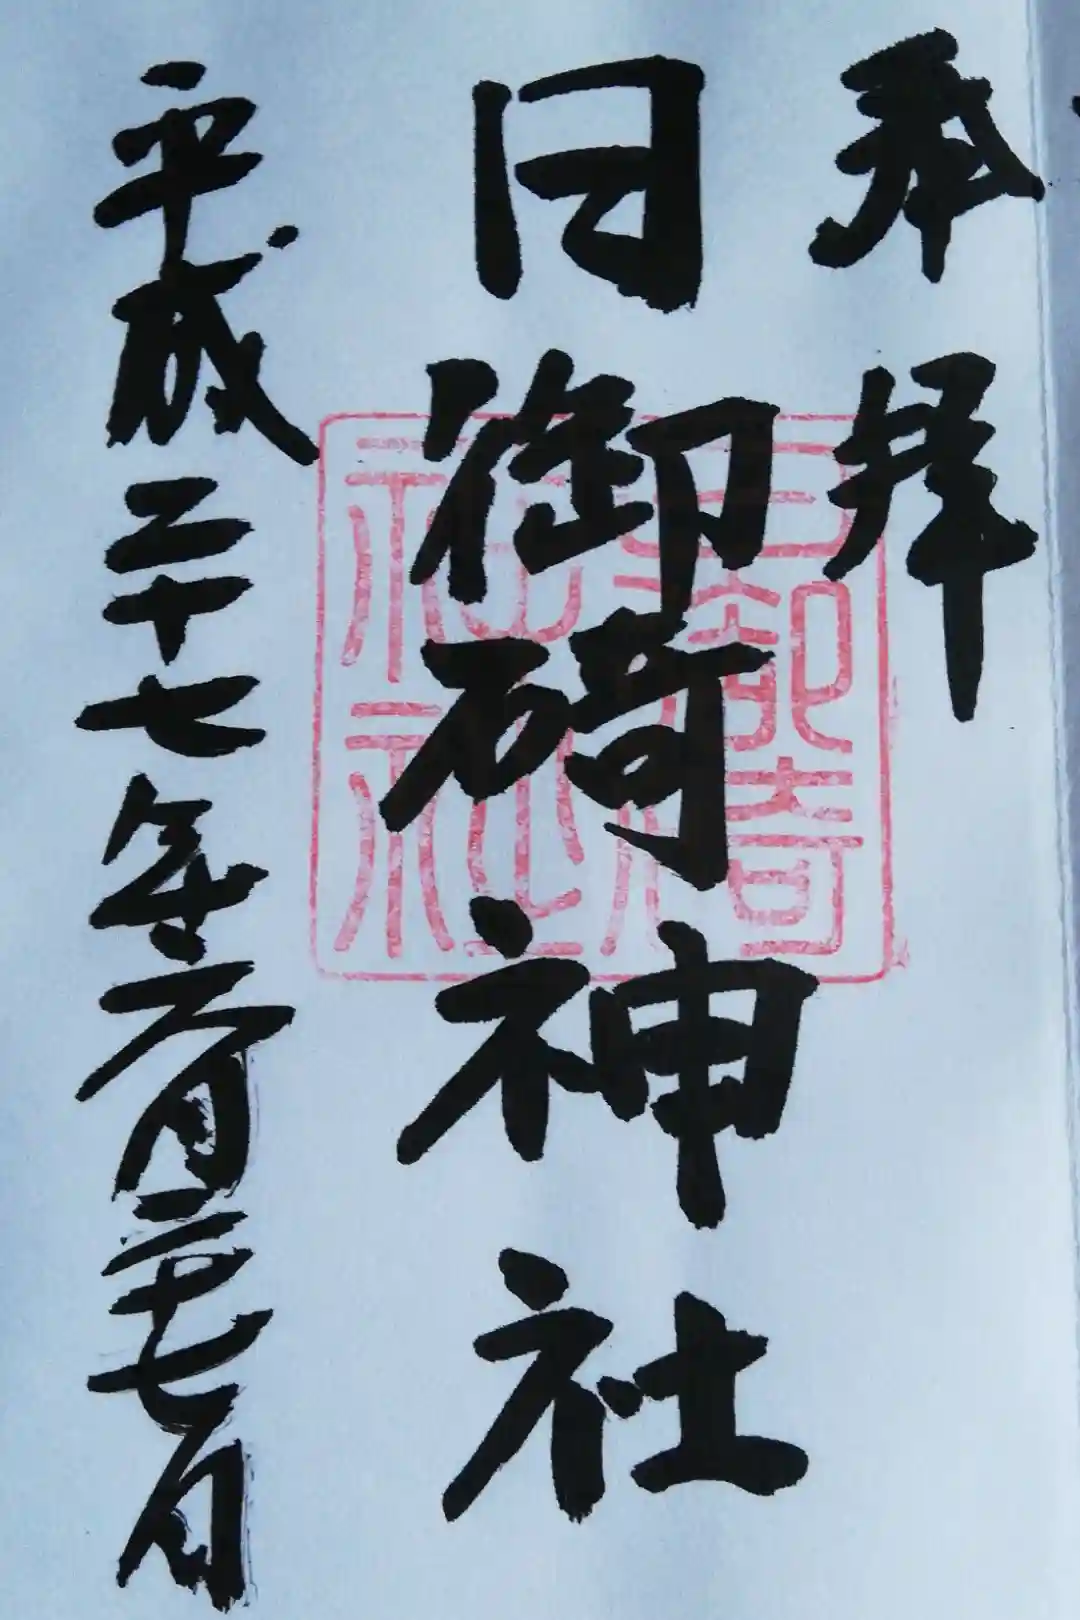 奉拝
日御碕神社
日御碕
神社
平成二十七年六月二十七日